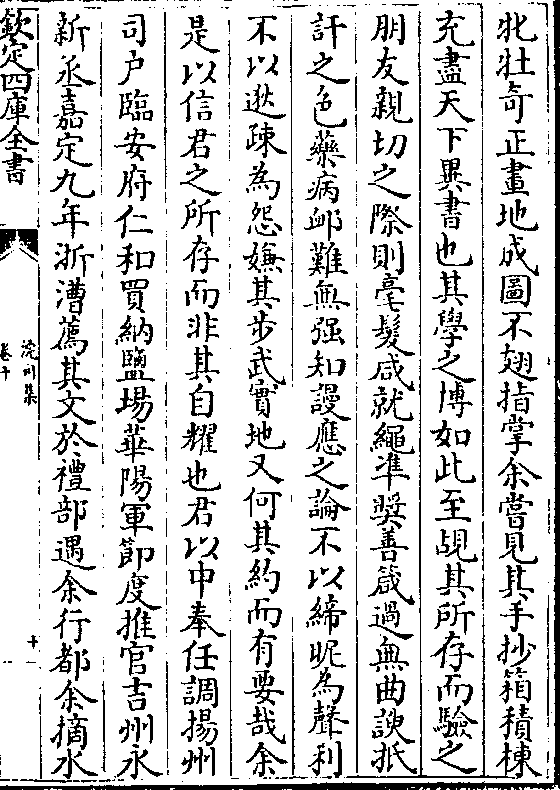 牝牡竒正畫地成圖不翅指掌余嘗見其手抄箱積棟
充盡天下異書也其學之博如此至覘其所存而驗之
朋友親切之際則毫髮咸就繩凖奬善箴過無曲諛抵
訐之色藥病䘏難無强知謾應之論不以締昵為聲利
不以逖疎為怨嫌其步武實地又何其約而有要哉余
是以信君之所存而非其自耀也君以中奉任調揚州
司户臨安府仁和買納鹽場華陽軍節度推官吉州永
新丞嘉定九年浙漕薦其文於禮部遇余行都余摘水
欽定四庫全書
浣川集
卷十
十